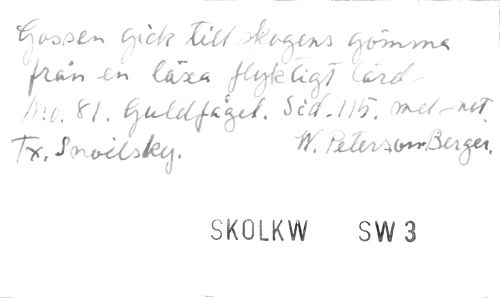 Gossen gick till skogens gömma
från en läxa flyktigt lärd-
No. 81. Guldfågel. Sid. 115. mel-not.
Tx. Snoilsky. W. Peterson-Berger.
SKOLKW SW 3